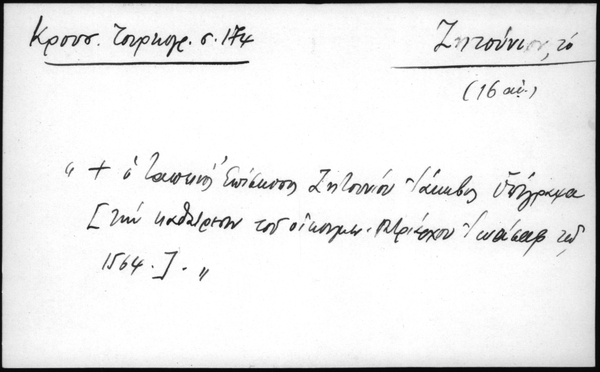 Κρουσ. Τουρκογρ. σ. 174
Ζητούνιον, τό
(16 αἰ.)
„ + ὁ ταπεινὸς Ἐπίσκοπος Ζητουνίου Ἰάκωβος ὑπέγραψα
[τὴν καθαίρεσιν τοῦ οἰκουμεν. Πατριάρχου Ἰωάσαφ τῷ
1564.]. „